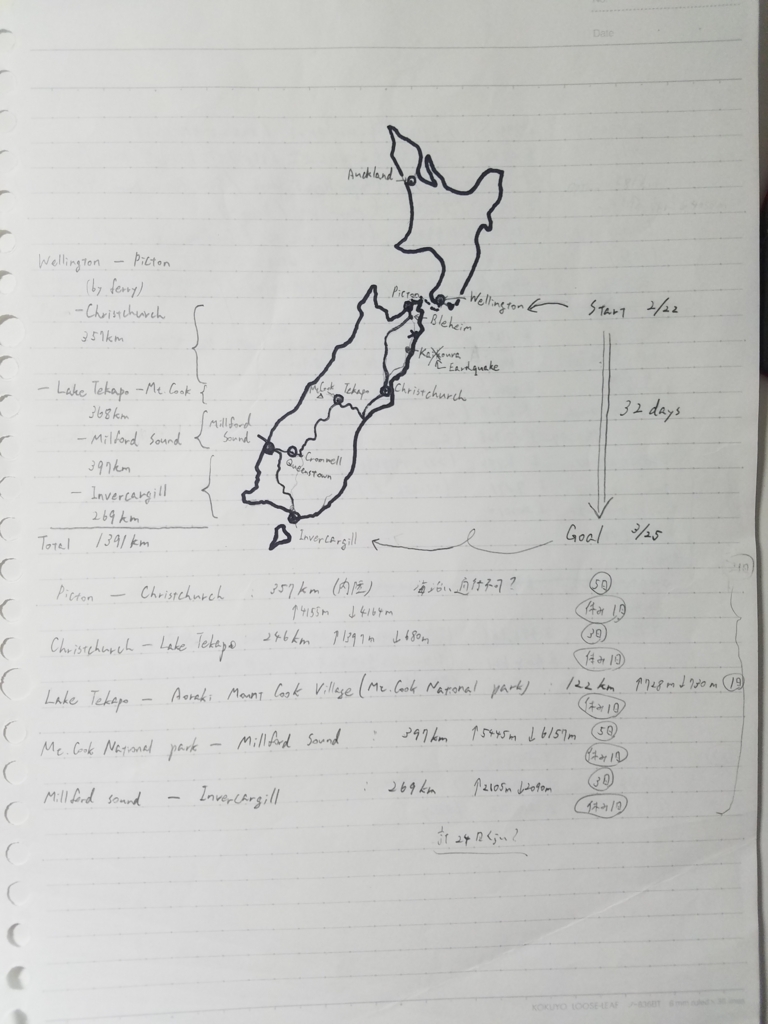 Date
Auckland
Wellington
Start 2/22
32 days
Goal 3/25
Picton
Bleheim
Kaikoura
Earthquake
Christchurch
Mt.Cook
Tekapo
Millford
Sound
Cromwell
Queenstown
Invercargill
Wellington - Picton
(by ferry)
- Christchurch
357km
- Lake Tekapo - Mt. Cook
368km
- Milford Sound
397km
- Invercargill
269km
Total 1391km
Picton - Christchurch : 357km (内陸) 海沿い通行不可? 5日
↑4155m ↓4164m 休み1日
Christchurch - Lake Tekapo 246km ↑1397m ↓680m 3日
休み1日
Lake Tekapo - Aoraki Mount Cook Village (Mt. Cook National park) : 122km ↑728m ↓730m 1日
休み1日
Mt. Cook National park - Millford Sound : 397km ↑5445m ↓6157m 5日
休み1日
Millford sound - Invercargill : 269km ↑2105m ↓2090m 3日
休み1日
計24日くらい?